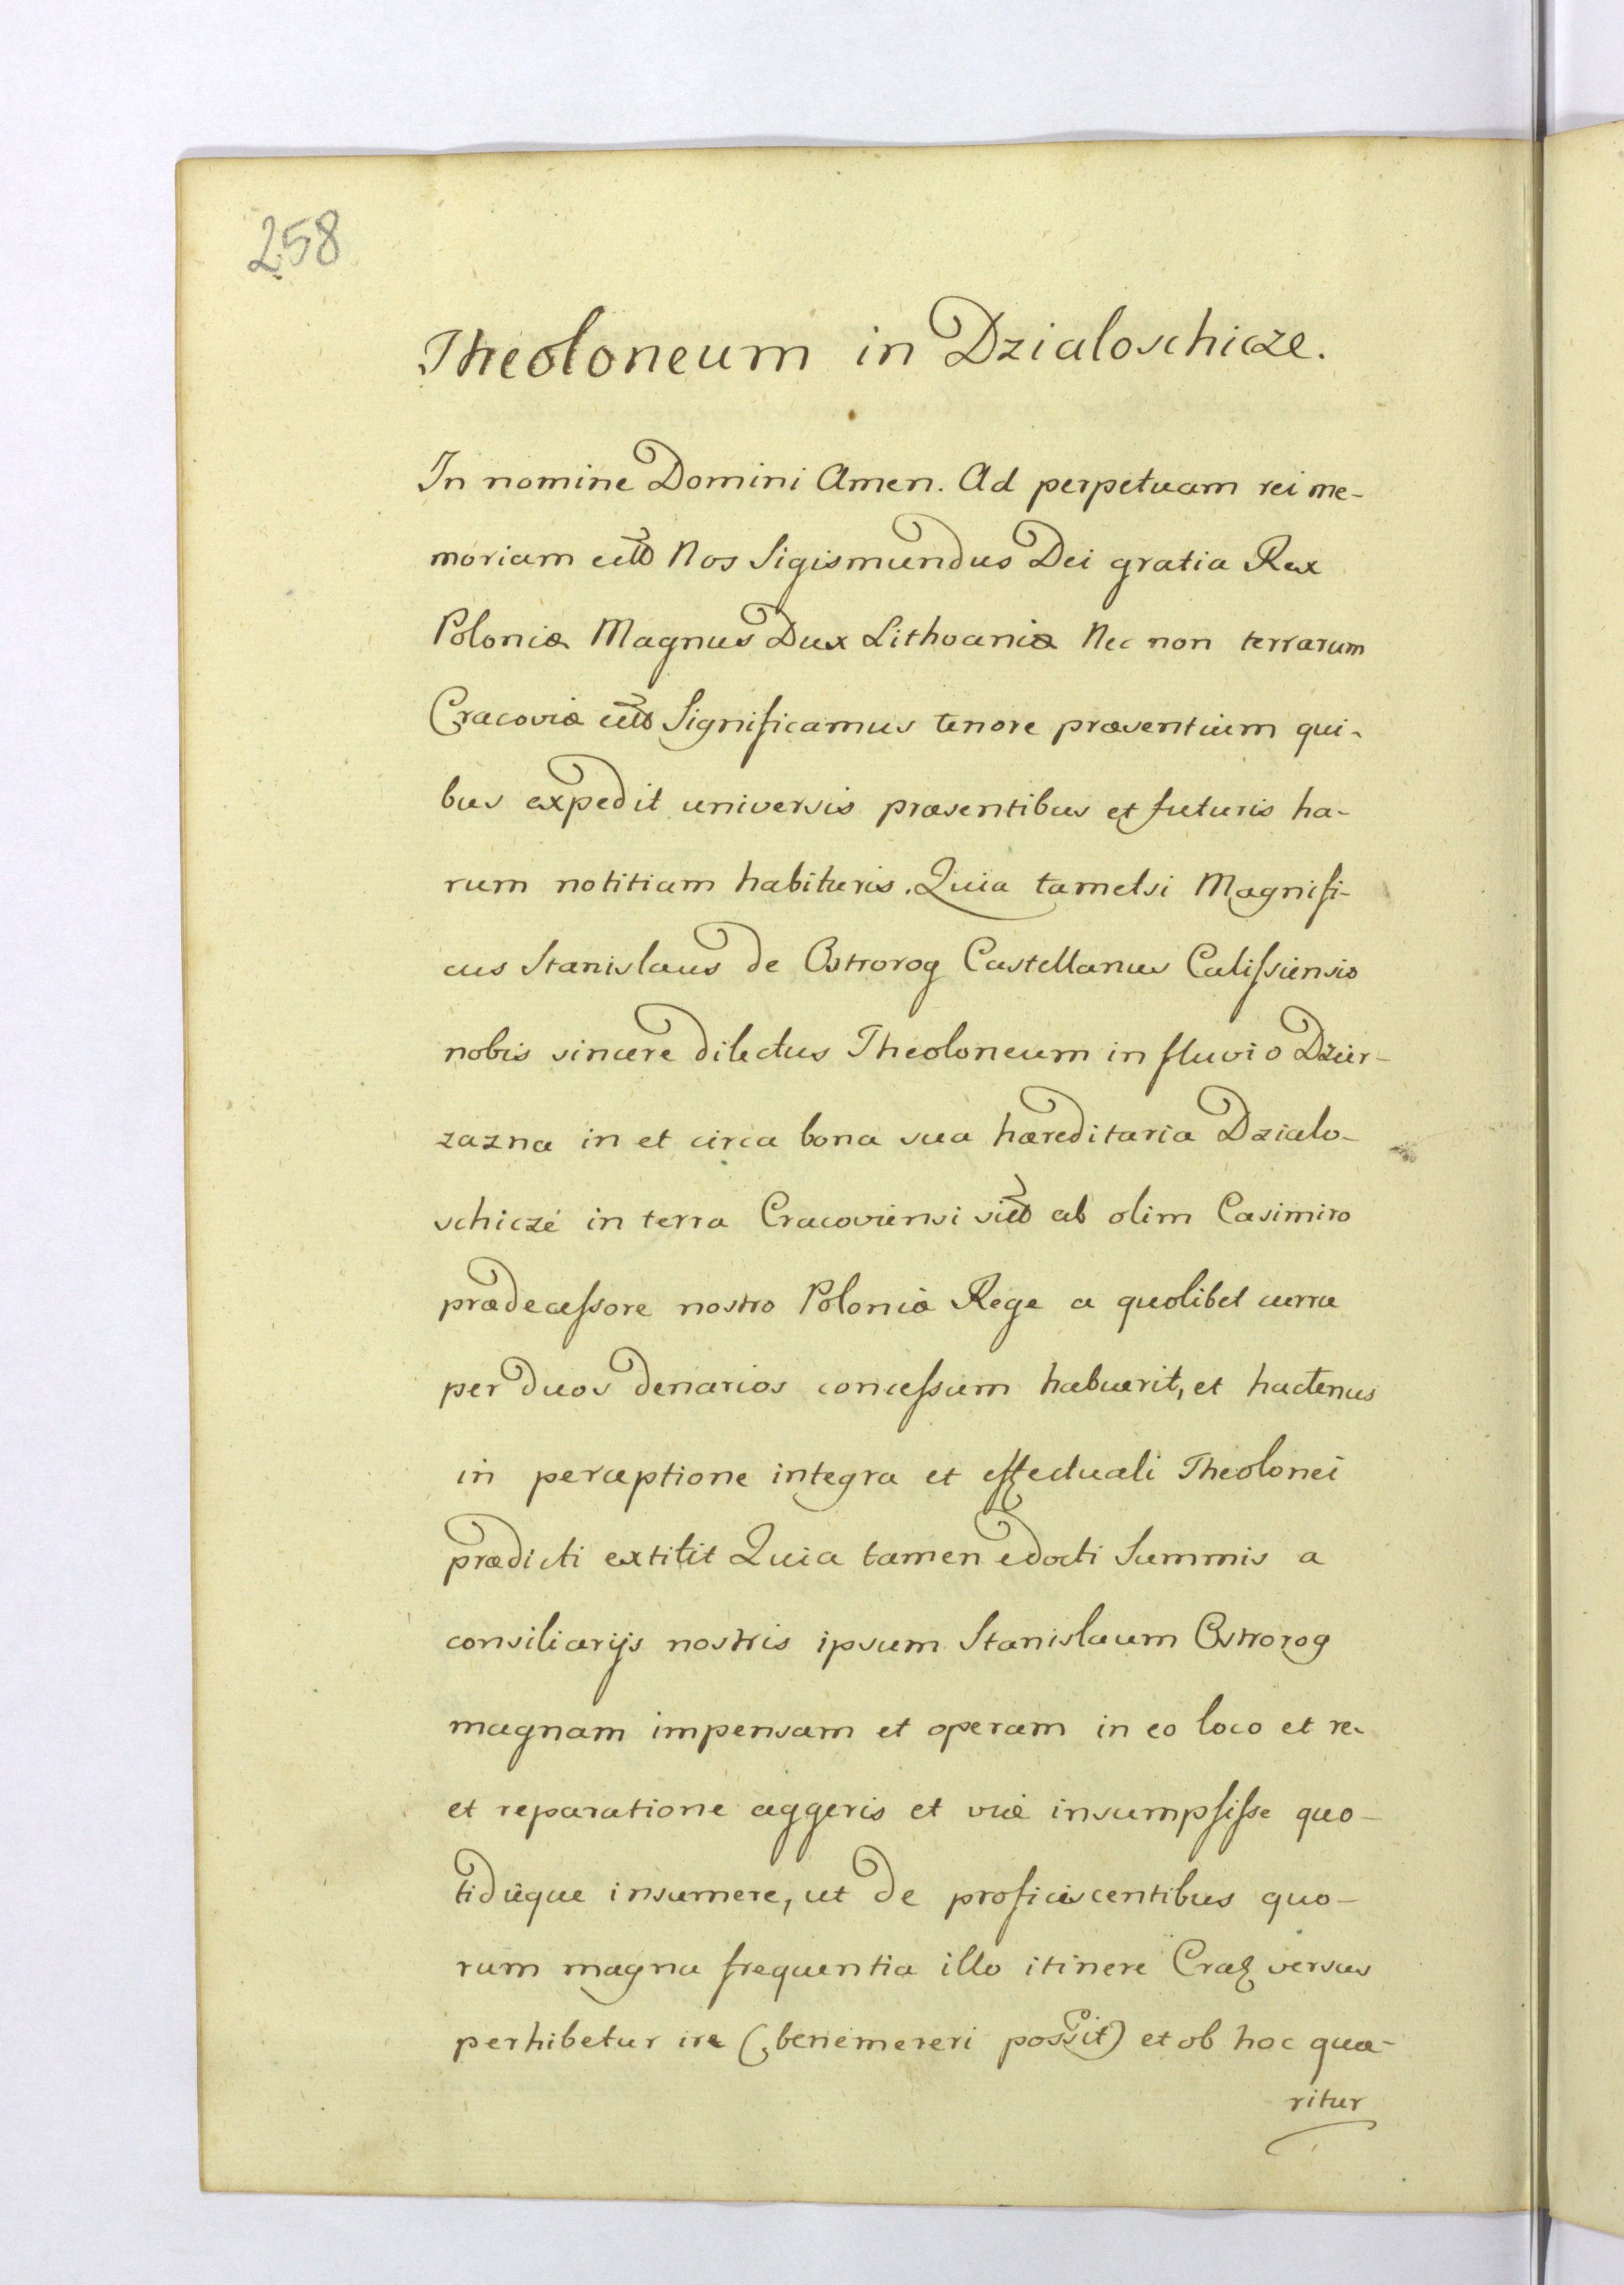 258
Theoloneum in Dzialoschicze.
In nomine Domini Amen. Ad perpetuam rei me-
moriam Nos Sigismundus Dei gratia Rex
Poloniæ Magnus Dux Lithvaniæ Nec non terrarum
Cracoviæ Significamus tenore præsentium qui-
bus expedit universis præsentibus et futuris ha-
rum notitiam habituris. Quia tametsi Magnifi-
cus Stanislaus de Ostrorog Castellanus Calissiensis
nobis sincere dilectus Theoloneum in fluvio Dzier-
zazna in et circa bona sua hæreditaria Dzialo-
schicze in terra Cracoviensi ab olim Casimiro
prædecessore nostro Poloniæ Rege a quolibet curru
per duos denarios concessum habuerit, et hactenus
in perceptione integra et effectuali Theolonei
prædicti extitit Quia tamen edocti Summis a
consiliarijs nostris ipsum Stanislaum Ostrorog
magnam impensam et operam in eo loco et re-
et reparatione aggeris et viæ insumpsisse quo-
tidieque insumere, ut de proficiscentibus quo-
rum magna frequentia illo itinere versus
perhibetur ire (benemereri possit) et ob hoc quæ-
ritur